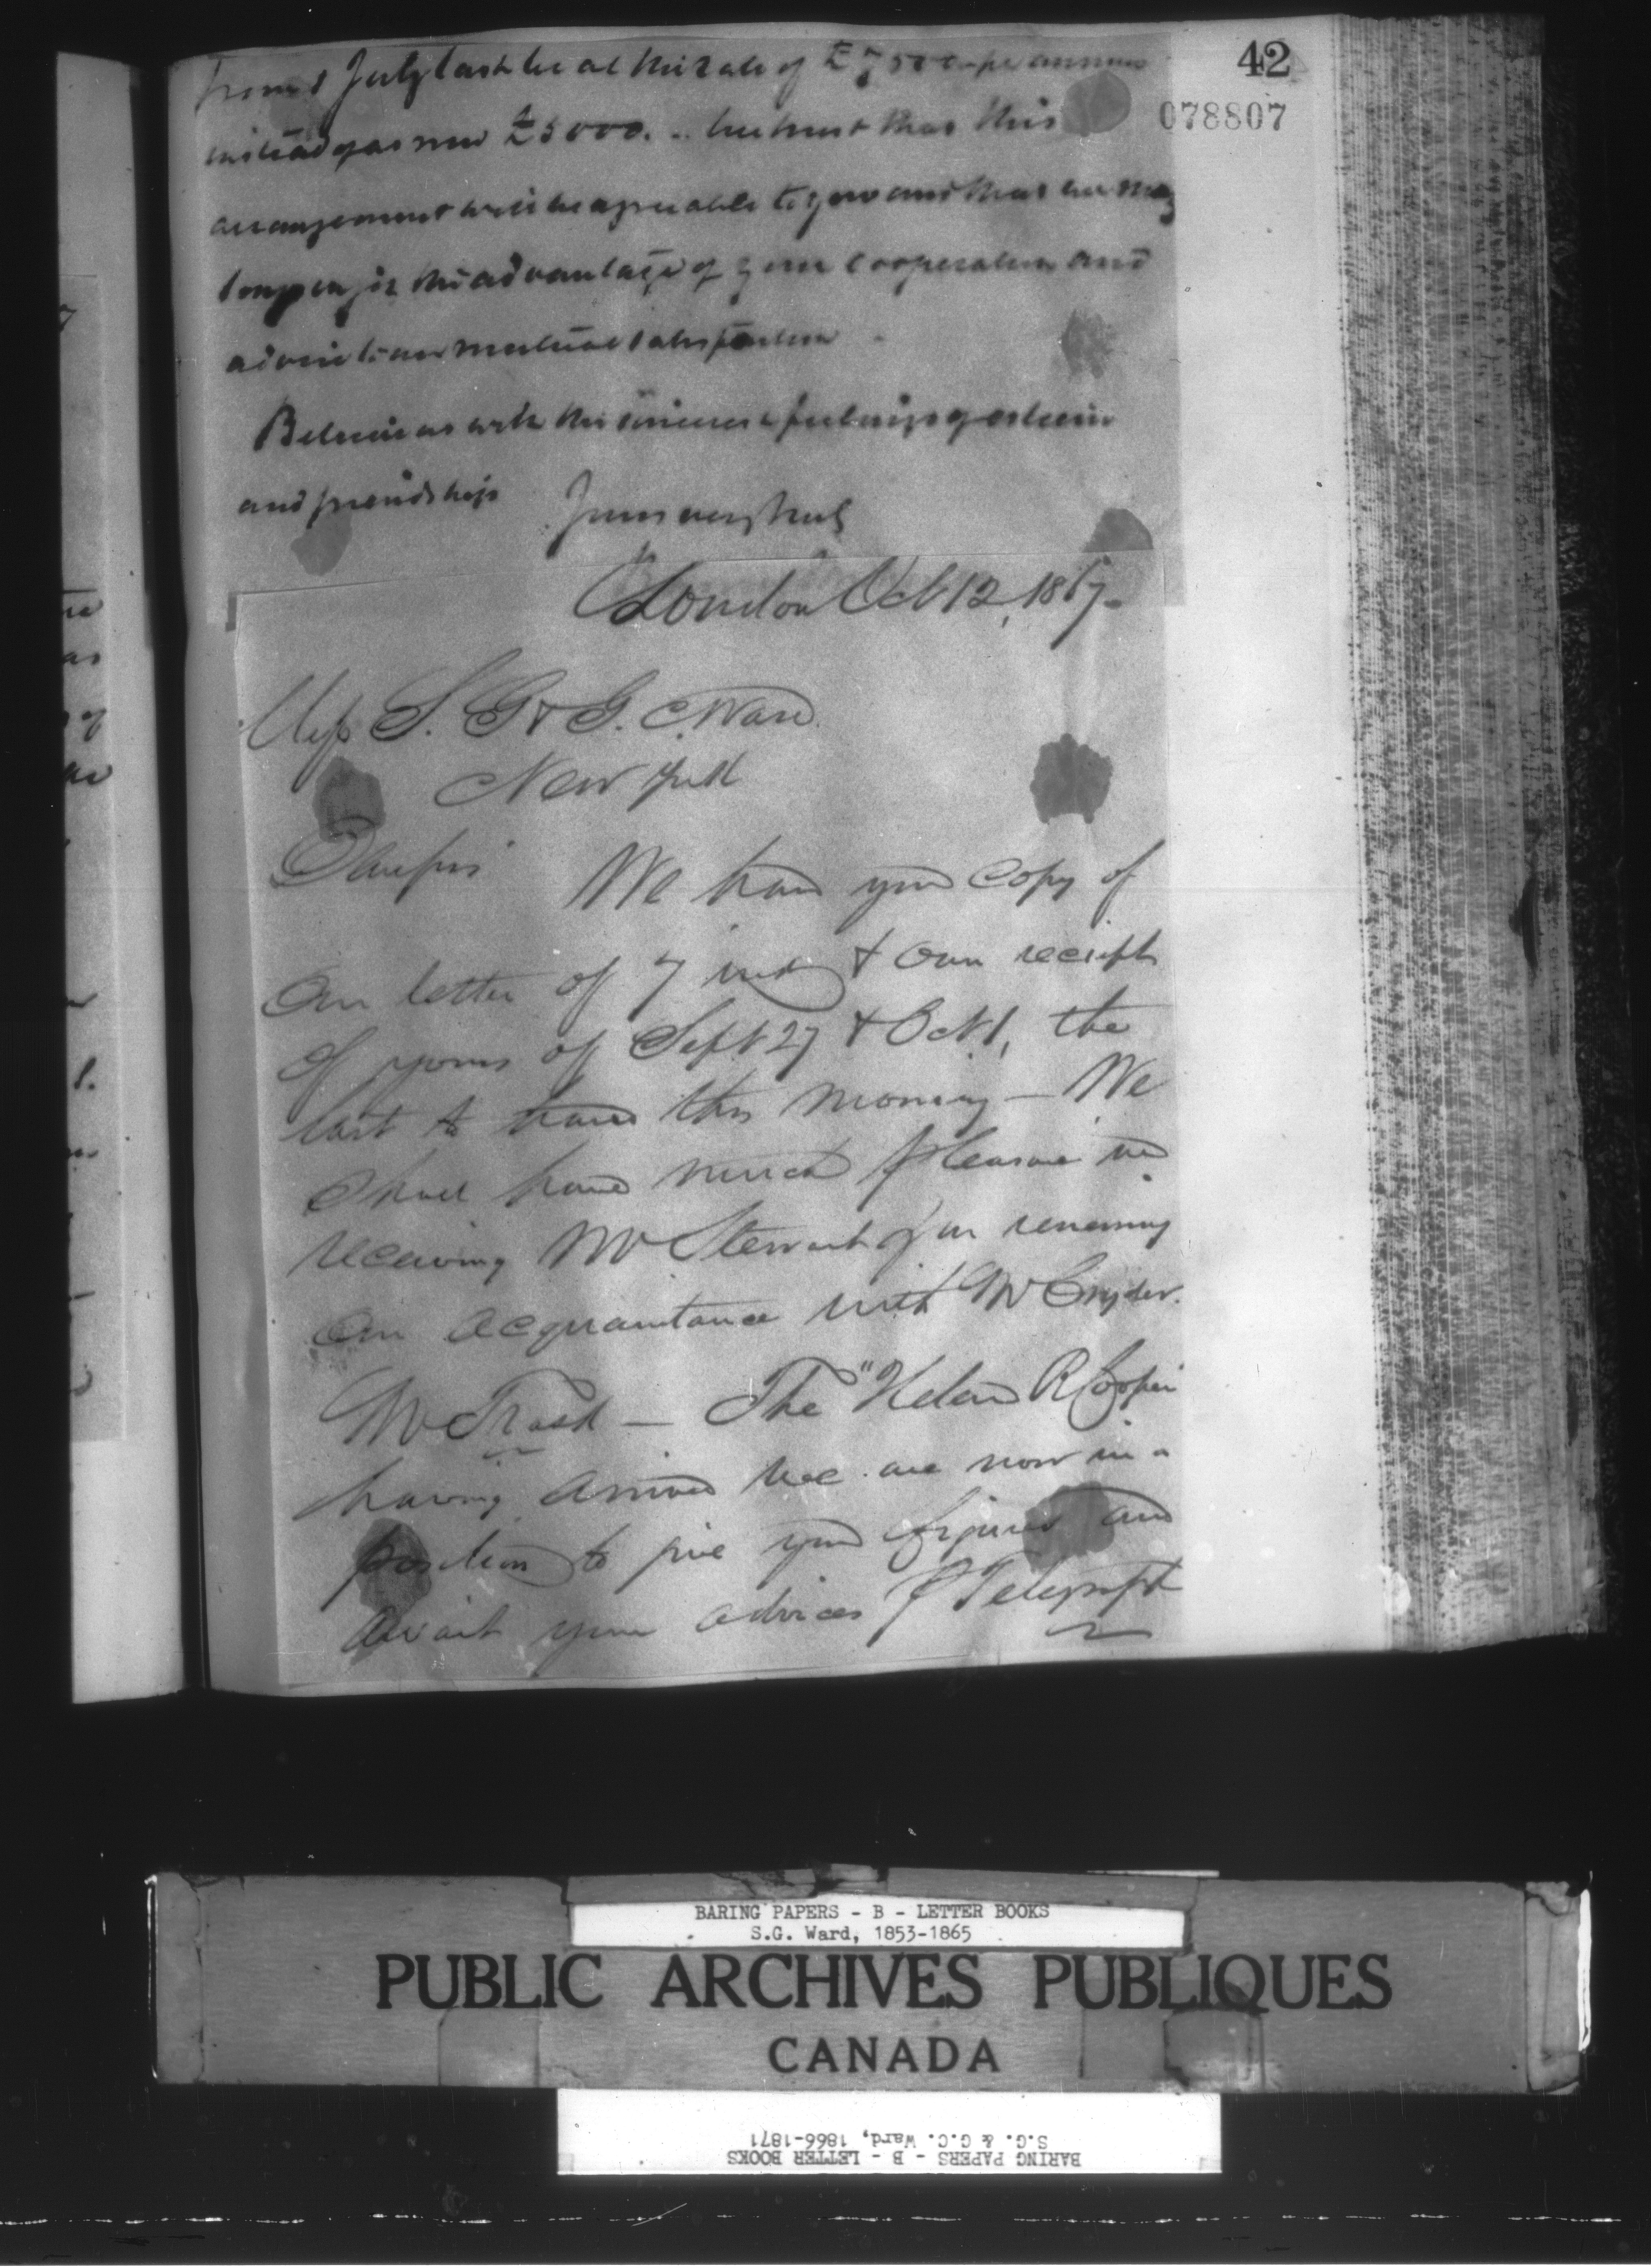 42
078807
from 1 July last be at the rate of £7500 per annum
instead of as now £5000. .. We trust that this
arrangement will be agreeable to you and that we may
long enjoy the advantage of your cooperation and
advice to our mutual satisfaction
Believe us with the sincerest feelings of esteem
and friendship Yours very truly
London Oct 12, 1867.
Mess S. G & G. C. Ward
New York
Dear sirs We hand you copy of
our letter of 7 inst & own receipt
of yours of Sept 27 & Oct 1, the
last to hand this morning — We
shall have much pleasure in
receiving Mr Stewart & in renewing
our acquaintance with Mr Snyder.
Mr Trask — The "Helen R Cooper
having arrived we are now in a
position to give you figures and
await your advices P Telegraph
BARING PAPERS - B - LETTER BOOKS
S.G. Ward, 1853-1865
PUBLIC ARCHIVES PUBLIQUES
CANADA
BARING PAPERS - B - LETTER BOOKS
S.G. & G.C. Ward, 1866-1871